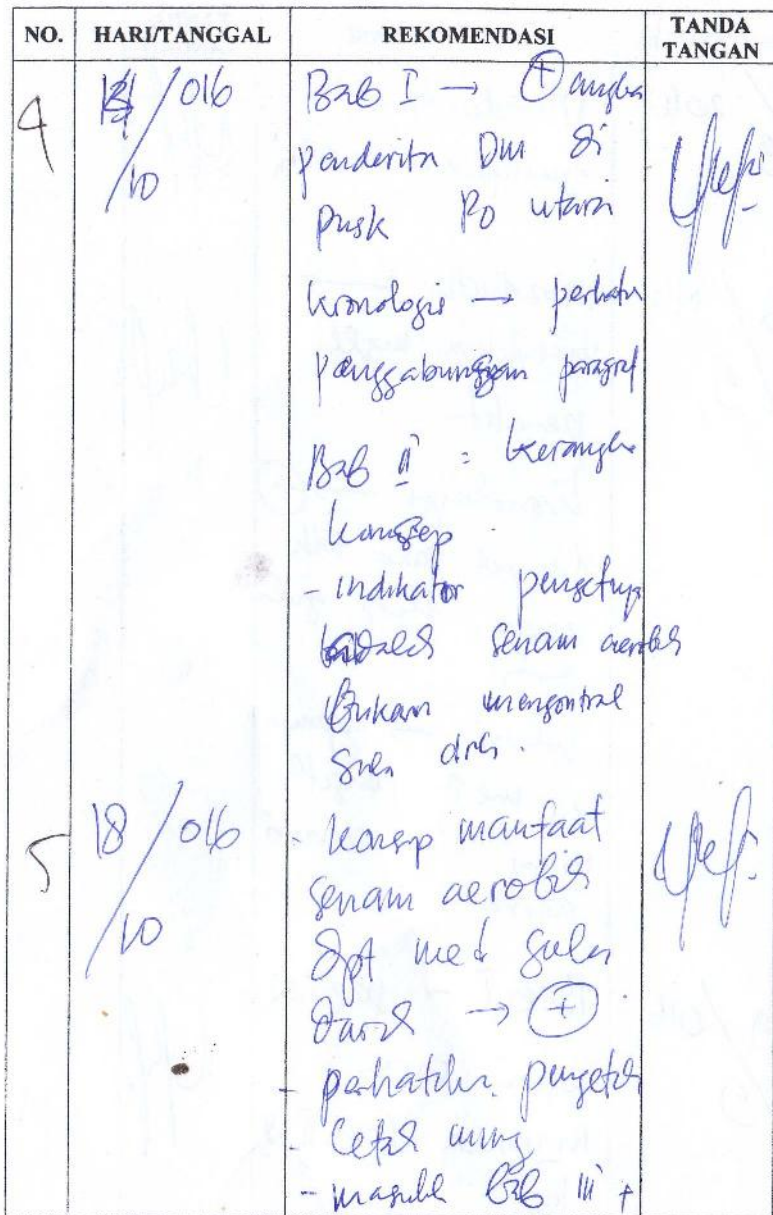 NO. HARI/TANGGAL REKOMENDASI TANDA TANGAN
4 /016 Bab I → + angka
/10 penderita DM di
pusk Po utara
kronologis → perhatikan
penggabungan paragraf
Bab II = kerangka
konsep
- indikator penget
adalah senam aerobik
bukan mengontrol
gula drh.
5 18/016 - konsep manfaat
/10 senam aerobik
dpt gula
darah → +
- perhatikan penget
-
- masuk bab III +